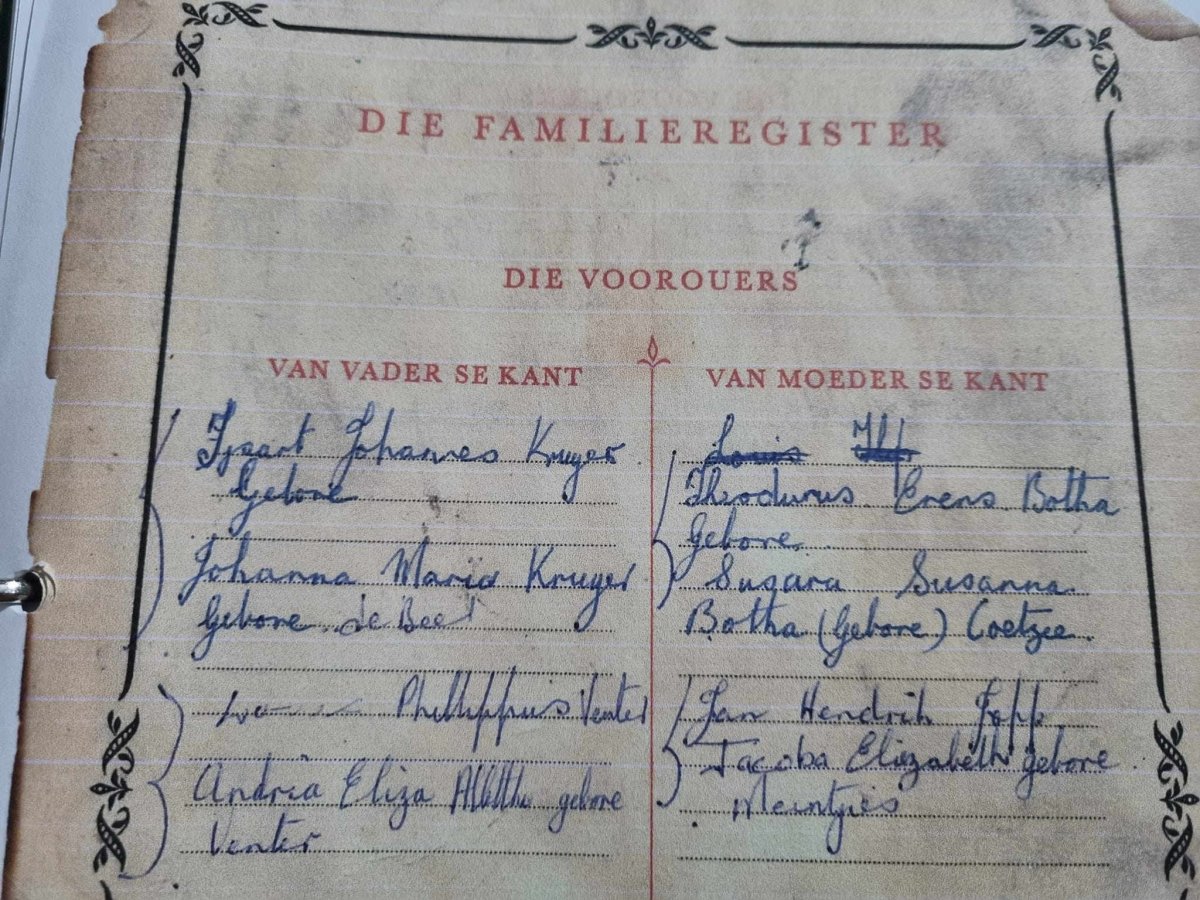 DIE FAMILIEREGISTER
DIE VOOROUERS
VAN VADER SE KANT
Johannes Kruger
Gebore
Johanna Maria Kruger
Gebore de Beer
Phillippus Venter
Andria Eliza gebore
Venter
VAN MOEDER SE KANT
Louis
Thodurus Erens Botha
Gebore
Susanna
Botha (Gebore) Coetzee.
Jan Hendrik
Jacoba Elizabeth gebore
Meintjies